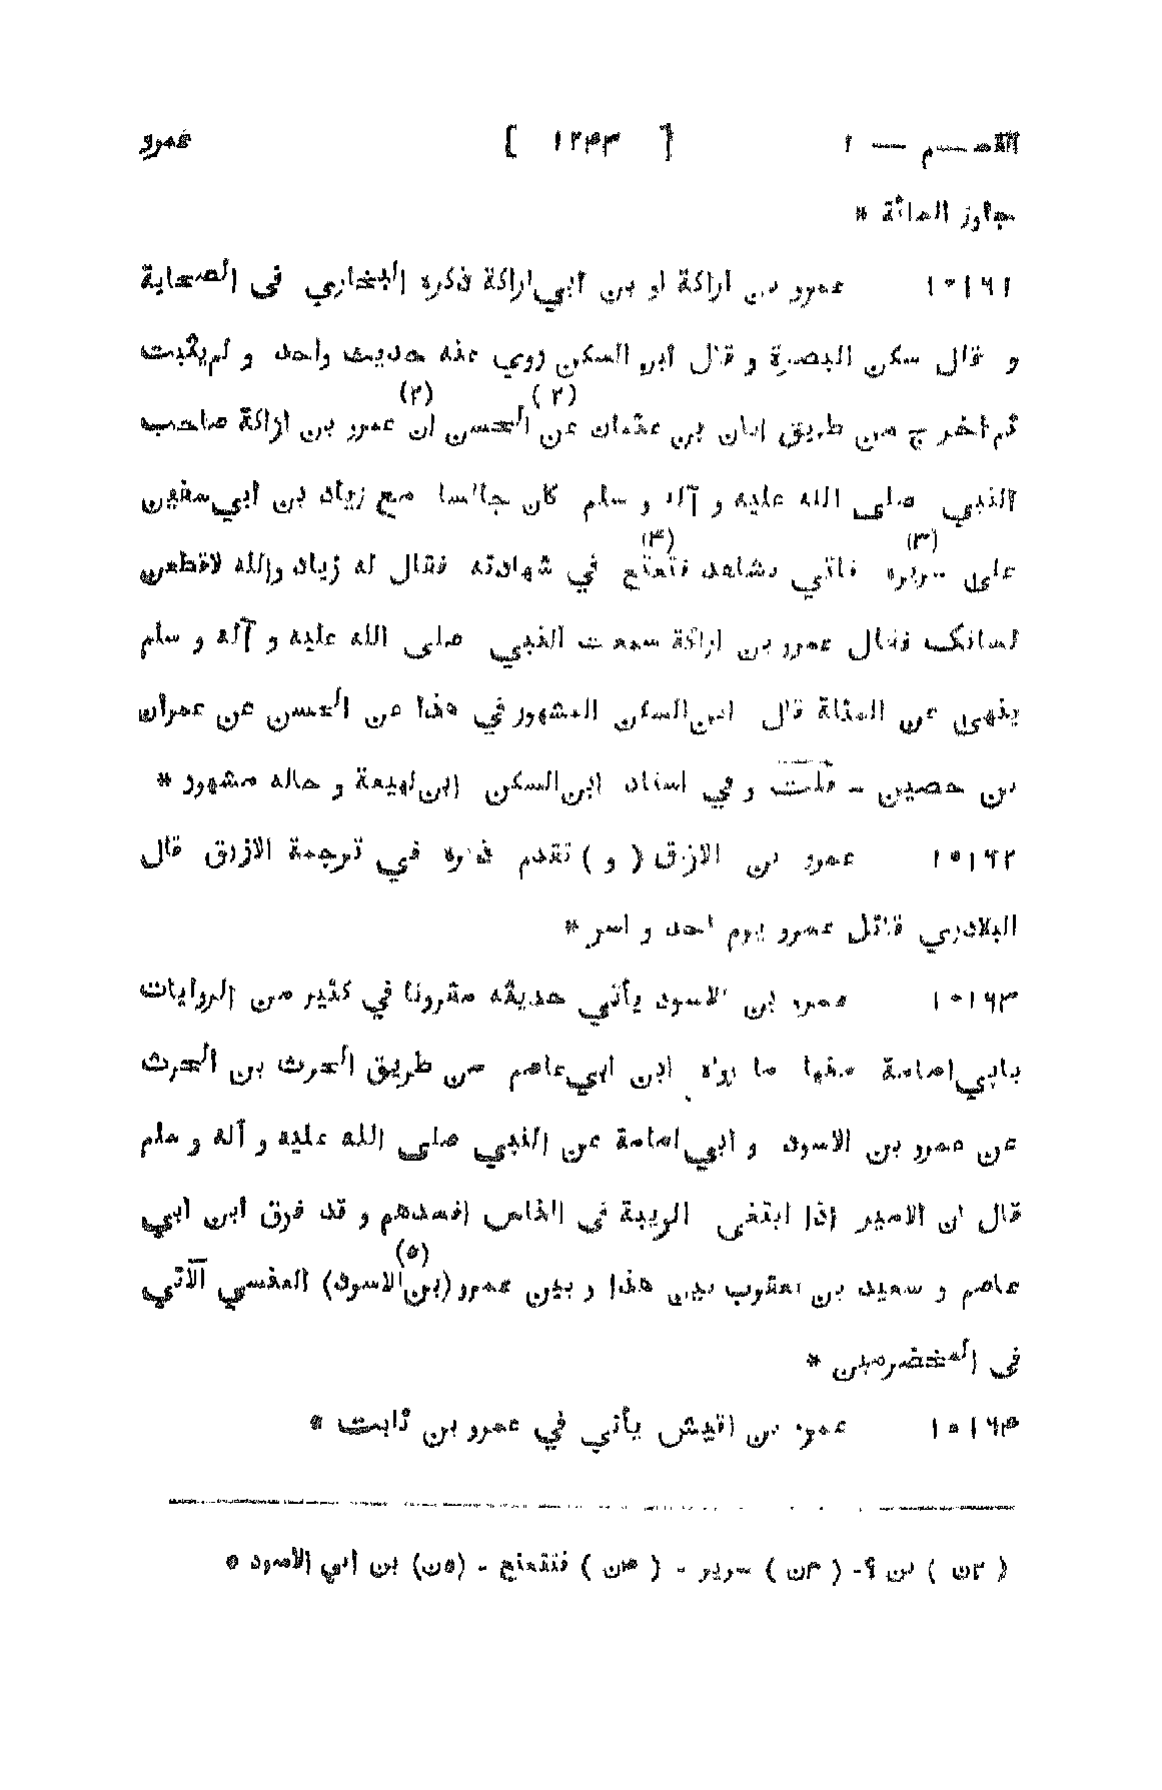 القسم — ١ [ ١٢٤٣ ] عمرو
جاوز المائة *
١٠١٦١ عمرو بن اراكة او بن أبي اراكة ذكره البخاري فى الصحابة
و قال سكن البصرة و قال ابن السكن روي عنه حديث واحد و لم يثبت
ثم اخرج من طريق ابان بن عثمان (٢) عن الحسن ان (٢) عمرو بن اراكة صاحب
النبي صلى الله عليه و آله و سلم كان جالسا مع زياد بن ابي سفين
على سريره (٣) فاتي بشاهد فتعتع (٤) في شهادته فقال له زياد والله لاقطعن
لسانك فقال عمرو بن اراكة سمعت النبي صلى الله عليه و آله و سلم
ينهى عن المثلة قال ابن السكن المشهور في هذا عن الحسن عن عمران
بن حصين - قلت و في اسناد ابن السكن ابن لهيعة و حاله مشهور *
١٠١٦٢ عمرو بن الازرق ( و ) تقدم ذكره في ترجمة الازرق قال
البلاذري قاتل عمرو يوم احد و اسر *
١٠١٦٣ عمرو بن الاسود يأتي حديثه مقرونا في كثير من الروايات
بابي امامة منها ما رواه ابن ابي عاصم من طريق الحرث بن الحرث
عن عمرو بن الاسود و ابي امامة عن النبي صلى الله عليه و آله و سلم
قال ان الامير اذا ابتغى الريبة فى الناس افسدهم و قد فرق ابن ابي
عاصم و سعيد بن يعقوب بين هذا و بين عمرو (بن الاسود) (٥) العنسي الآتي
فى المخضرمين *
١٠١٦٤ عمرو بن اقيش يأتي في عمرو بن ثابت *
( ٢ن ) بن ؟- ( ٣ن ) سرير - ( ٤ن ) فتتعتع - (٥ن) بن ابي الاسود *